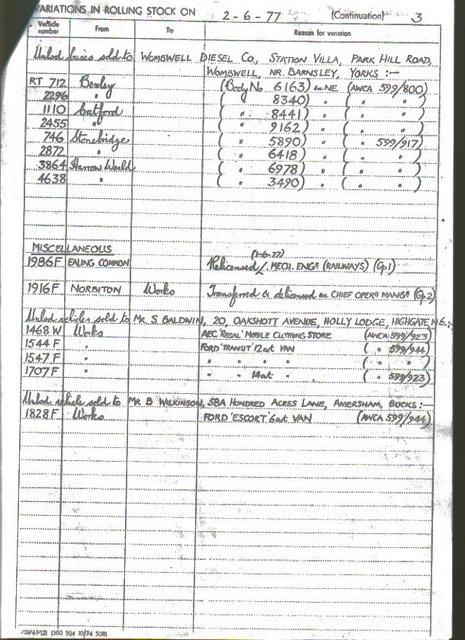 VARIATIONS IN ROLLING STOCK ON 2-6-77 (Continuation) 3
Vehicle number From To Reason for variation
Unlicd buses sold to WOMBWELL DIESEL Co, STATION VILLA, PARK HILL ROAD,
WOMBWELL, NR. BARNSLEY, YORKS :-
RT 712 Bexley (Body No 6163) ex NE. (AWCA 599/800)
2296 " ( " 8340) " ( " " )
1110 Catford ( " 8441) " ( " " )
2455 " ( " 9162) " ( " " )
746 Stonebridge ( " 5890) " ( " 599/917)
2872 " ( " 6418) " ( " " )
3864 Harrow Weald ( " 6978) " ( " " )
4638 " ( " 3490) " ( " " )
MISCELLANEOUS
(1-6-77)
1986F EALING COMMON Relicensed f. MECH. ENGR (RAILWAYS) (Gp1)
1916F NORBITON Works Transferred & delicensed ex CHIEF OPERG MANGR (Gp2)
Unlicd vehicles sold to MR S BALDWIN, 20, OAKSHOTT AVENUE, HOLLY LODGE, HIGHGATE N6,:-
1468 W Works AEC 'REGAL' MOBILE CLOTHING STORE (AWCA 599/923)
1544 F " FORD 'TRANSIT' 12 seat VAN ( " 599/944)
1547 F " " " " " ( " " )
1707 F " " " 14 seat " ( " 599/923)
Unlicd vehicle sold to MR B WILKINSON, 58A HUNDRED ACRES LANE, AMERSHAM, BUCKS:-
1828F Works FORD 'ESCORT' 6 cwt VAN (AWCA 599/944)